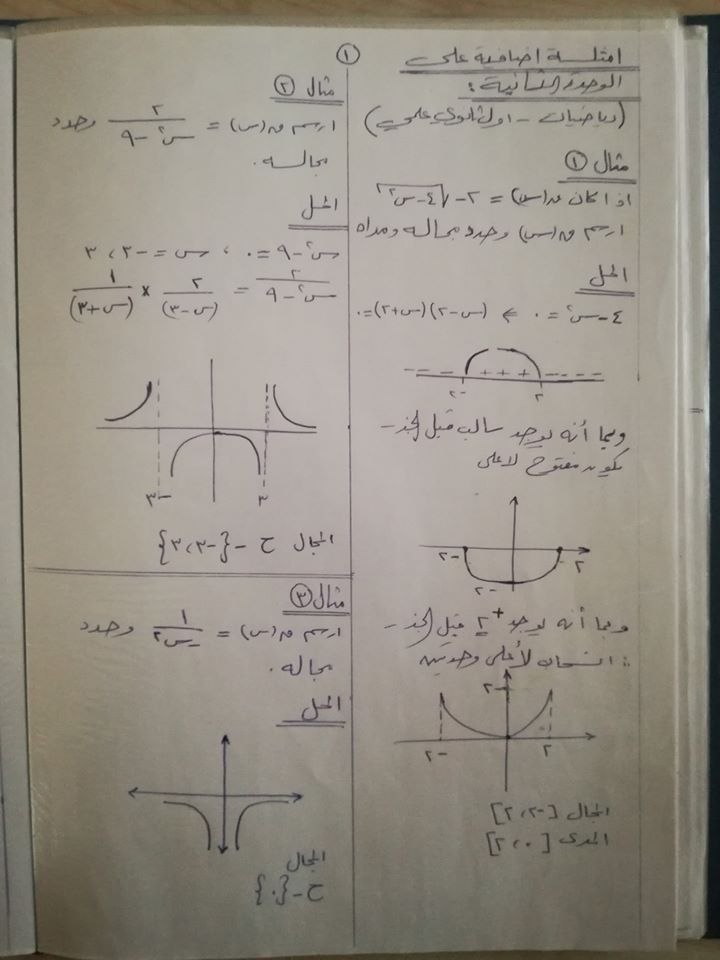 ١
امثلة اضافية على
الوحدة الثانية :
(رياضيات - اول ثانوي علمي)
مثال ١
اذا كان ق(س) = ٢ - √٤ - س٢
ارسم ق(س) وحدد مجاله ومداه
الحل
٤ - س٢ = ٠ ⇐ (س - ٢)(س + ٢) = ٠
- - - + + + - - - -
-٢ ٢
وبما أنه يوجد سالب قبل الجذر
يكون مفتوح لاعلى
-٢ ٢
-٢
وبما أنه يوجد +٢ قبل الجذر
∴ انسحاب لأعلى وحدتين
٢
-٢ ٢
المجال [-٢ ، ٢]
المدى [٠ ، ٢]
مثال ٢
ارسم ق(س) = ٢ / س٢ - ٩ وحدد
مجاله .
الحل
س٢ - ٩ = ٠ ، س = -٣ ، ٣
٢ / س٢ - ٩ = ٢ / (س - ٣) × ١ / (س + ٣)
-٣ ٣
المجال ح - {-٣ ، ٣}
مثال ٣
ارسم ق(س) = ١ / -س٢ وحدد
مجاله .
الحل
المجال
ح - {٠}